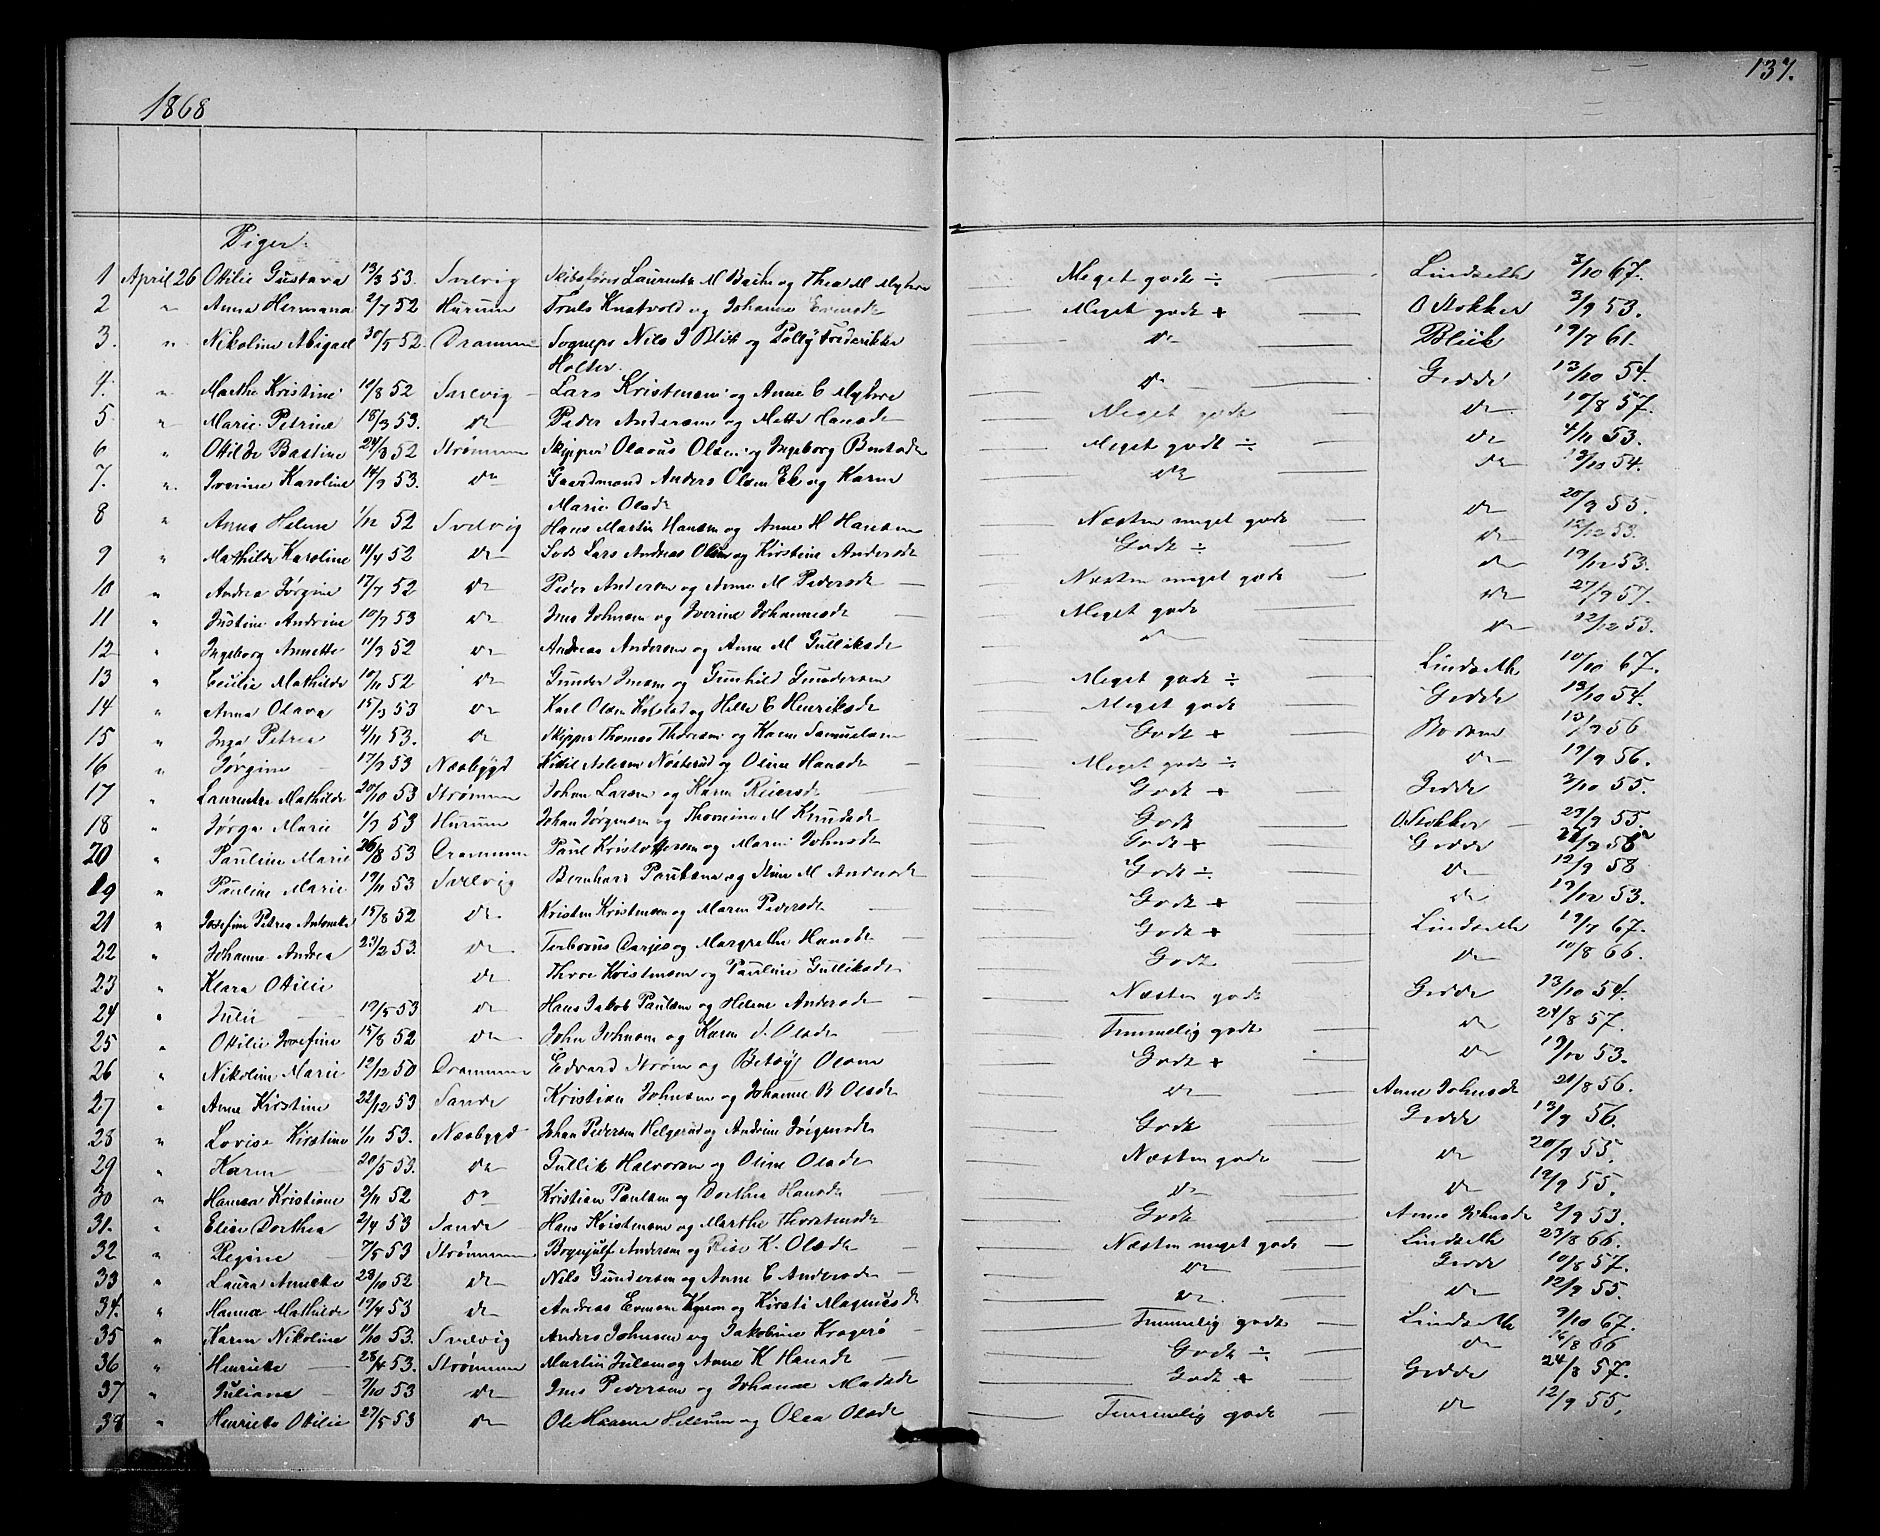 1868
137.
Piger
1 April 26 Ottilie Gustava 13/3 53. Svelvig Skibsfører Laurentz M Bache og Thea M Myhre Meget godt ÷ Lindseth 3/10 67.
2 " Anna Hermana 2/7 52 Hurum Truls Knatvold og Johanne Evensdt Meget godt + O Stokker 3/9 53.
3. " Nikoline Abigael 30/5 52. Drammen Sognepr Nils J Blix og Polly Frederikke do Bliik 19/7 61.
Holter.
4. " Marthe Kristine 10/8 52 Svelvig Lars Kristensen og Anne C Myhre do Gedde 13/10 54.
5 " Marie Petrine 18/3 53. do Peder Andersen og Mette Hansdt Meget godt do 10/8 57.
6 " Ottilde Bastine 24/3 52 Strømmen Skipper Olavus Olsen og Ingeborg Bentsdt Meget godt ÷ do 4/11 53.
7. " Iverine Karoline 14/9 53. do Gaardmand Anders Olsen Ek og Karen do do 13/10 54.
Marie Olsdt
8 " Anna Helene 1/12 52 Svelvig Hans Martin Hansen og Anne H Hansen Næsten meget godt do 20/9 55.
9 " Mathilde Karoline 11/4 52 do Lods Lars Andreas Olsen og Kirstine Andersdt Godt ÷ do 12/12 53.
10 " Andrea Jørgine 17/7 52 do Peder Andersen og Anne M Pedersdt Næsten meget godt do 19/12 53.
11 " Justine Andrine 10/7 53 do Jens Johnsen og Iverine Johannesdt Meget godt do 27/9 57.
12 " Ingeborg Annette 11/9 52 do Andreas Andersen og Anne M Gulliksdt do do 12/12 53.
13 " Cecilie Mathilde 10/11 52 do Gunder Jensen og Gunhild Gundersen Meget godt ÷ Lindseth 10/10 67.
14 " Anna Olava 15/3 53 do Karl Olsen og Helle C Henriksdt Meget godt Gedde 13/10 54.
15 " Inga Petrea 4/11 53. do Skipper Thomas Thoresen og Karen Samuelsen Godt + 13/9 56
16 " Jørgine 17/9 53 Næsbygd Kittil Aslesen Nøsterud og Oline Hansdt Meget godt ÷ do 19/9 56.
17 " Laurentze Mathilde 20/10 53 Strømmen Johan Larsen og Karen Reiersdt Godt + Gedde 3/10 55.
18 " Jørga Marie 1/9 53 Hurum Johan Jørgensen og Thomine M Knudsdt Godt O Stokker 23/9 55.
20 " Pauline Marie 26/8 53 Drammen Paul Kristoffersen og Maren Johnsdt Godt + Gedde
19 " Pauline Marie 19/11 53 Svelvig Bernhard Paulsen og Anne M Andersdt Godt ÷ do 12/9 58
21 " Josefine Petrea Antonette 15/8 52 do Kristen Kristensen og Maren Pedersdt Godt + do 19/12 53.
22 " Johanne Andrea 23/2 53. do Torbørus Darjes og Margrethe Hansdt Godt + Lindseth 19/7 67.
23 " Klara Otilie do Thore Kristensen og Pauline Gulliksdt Godt do 10/8 66.
24 " Julie 19/5 53 do Hans Jakob Paulsen og Helene Andersdt Næsten godt Gedde 13/10 54.
25 " Ottilie Josefine 15/8 52 do John Johnsen og Karen J. Olsdt Temmelig godt do 24/8 57.
26 " Nikoline Marie 12/12 50 Drammen Edvard Strøm og Betsy Olsen Godt + do 19/12 53.
27 " Anne Kirstine 22/12 53 Sande Kristian Johnsen og Johanne B Olsdt do Anne Johnsdt 20/8 56.
28 " Lovise Kirstine 1/11 53. Næsbygd Johan Pedersen Helgerud og Andrine Jørgensdt Godt Gedde 13/9 56.
29 " Karen 20/5 53. do Gullik Halvorsen og Oline Olsdt Næsten godt do 20/9 55.
30 " Hansea Kristiane 2/11 52 do Kristian Paulsen og Dorthea Hansdt do do 12/9 55.
31. " Elise Dorthea 2/4 53 Sande Hans Kristensen og Marthe Thorstensdt Godt Anne Johnsdt 2/9 53.
32 " Regine 7/5 53 Strømmen Andersen og Rise K. Olsdt Næsten meget godt Lindseth 23/8 66.
33 " Laura Annette 28/10 52 do Nils Gundersen og Anne C Andersdt do Gedde 10/8 57.
34. " Hanna Mathilde 19/4 53 do Andreas Evensen og Kirsti Magnusdt do do 12/9 55.
35 " Karen Nikoline 11/10 53. Svelvig Anders Johnsen og Jakobine Kragerø Temmelig godt Lindseth 9/10 67.
36 " Henriette 28/4 53. Strømmen Martin Julsen og Anne K Hansdt Godt ÷ do 16/8 66
37 " Juliane 7/10 53 do Jens Pedersen og Johanne Madsdt Godt + Gedde 24/8 57.
38 " Henriette Otilie 27/5 53 do Ole Hansen Hellum og Olea Olsdt Temmelig godt do 12/9 55,